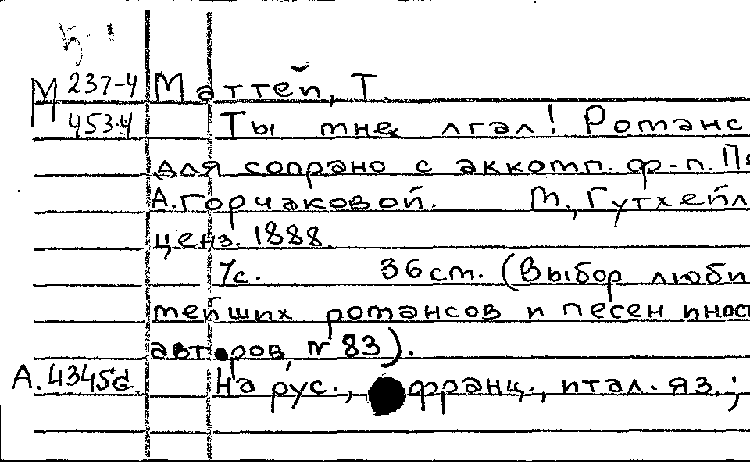 М 237-4 Маттеи, Т.
453-4 Ты мне лгал! Романс
для сопрано с аккомп. ф-п. Пе
А. Горчаковой. М., Гутхейл
ценз. 1888.
7с. 36 см. (Выбор люби
мейших романсов и песен иност
авторов, № 83).
А.4345д На рус., франц., итал. яз.;